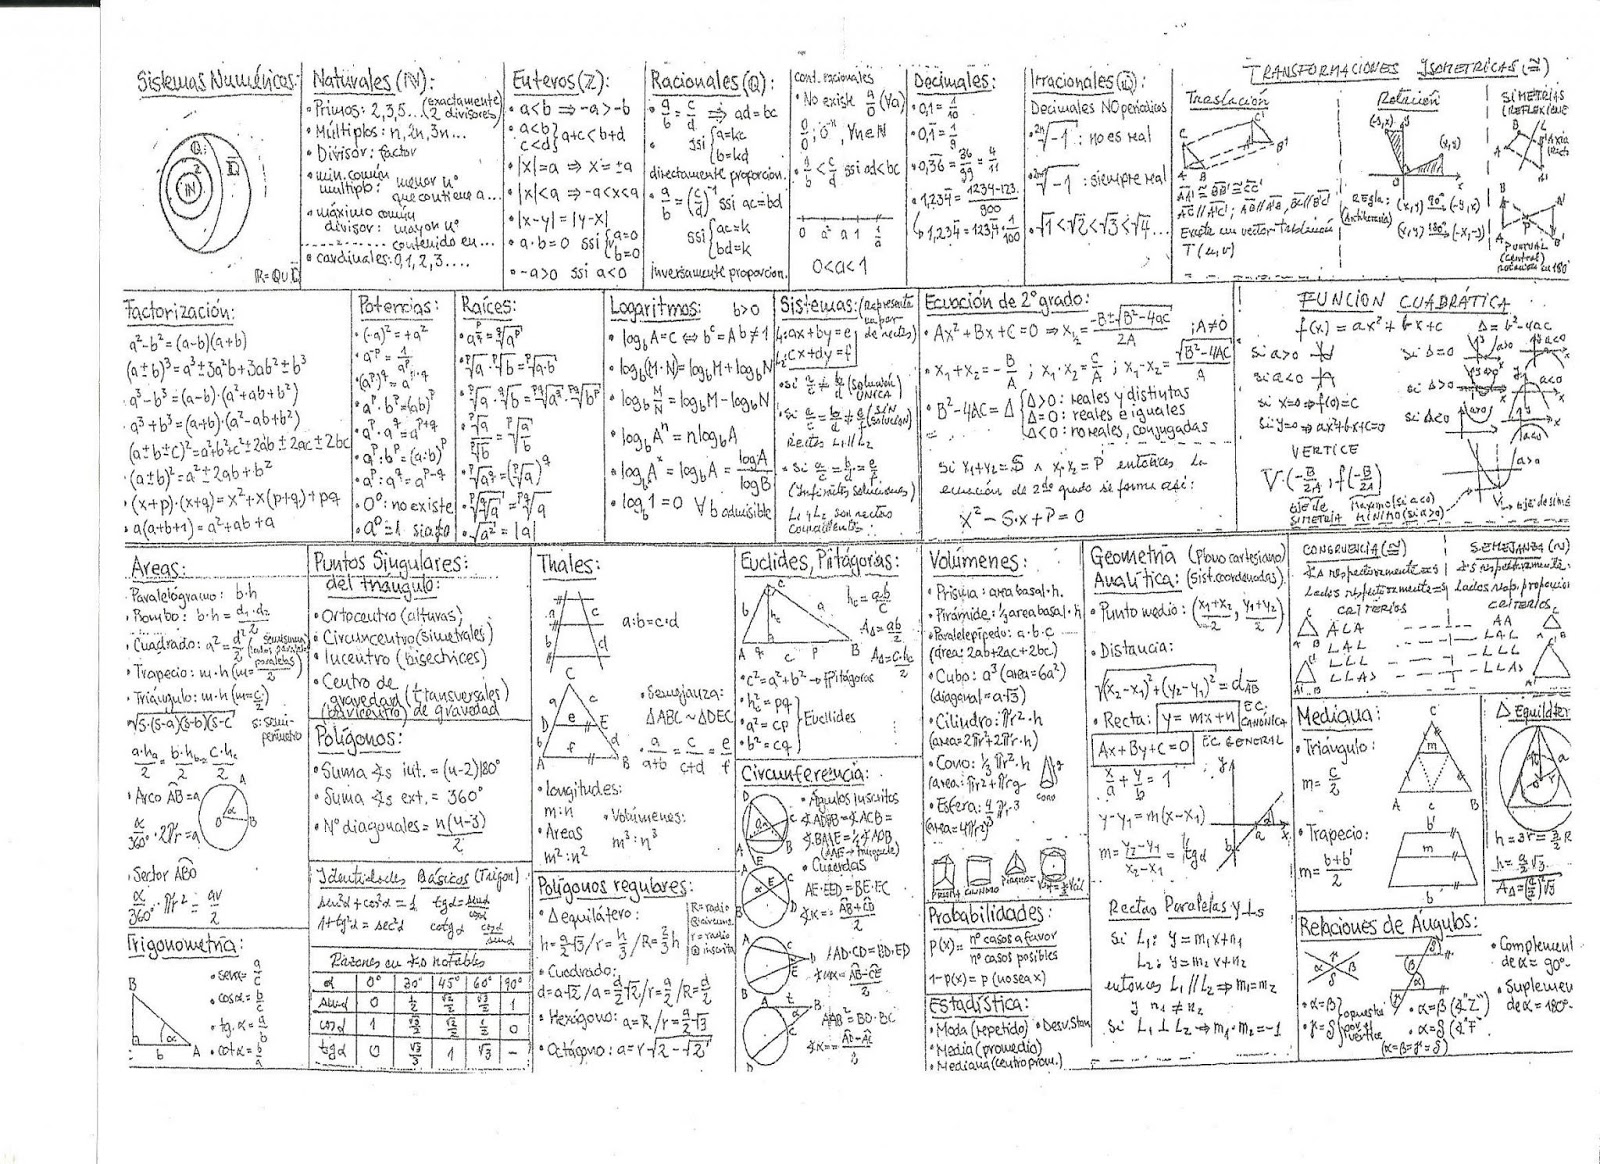 Sistemas Numéricos:
IN
Z
Q
IR = Q ∪
Naturales (IN):
• Primos: 2,3,5... (exactamente 2 divisores)
• Múltiplos: n, 2n, 3n...
• Divisor: factor
• min. común
multiplo: menor nº
que contiene a...
• máximo común
divisor: mayor nº
contenido en...
• cardinales: 0, 1, 2, 3....
Enteros (Z):
• a<b ⇒ -a>-b
• a<b
c<d} a+c<b+d
• |x|=a ⇒ x=±a
• |x|<a ⇒ -a<x<a
• |x-y|=|y-x|
• a·b=0 ssi {a=0
b=0
• -a>0 ssi a<0
Racionales (Q):
• a/b = c/d ⇒ ad=bc
ssi {a=kc
b=kd
directamente proporcion.
• a/b = (c/d)⁻¹ ssi ac=bd
ssi {ac=k
bd=k
inversamente proporcion.
cont. racionales
• No existe a/0 (∀a)
• a/b < c/d ssi ad<bc
0 a² a 1 1/a
0<a<1
Decimales:
• 0,1 = 1/10
• 0,1̄ = 1/9
• 0,36 = 36/99 = 4/11
• 1,234̄ = 1234-123/900
↳ 1,234̄ = 123,4̄ · 1/100
Irracionales (Q̄):
Decimales NO periodicos
• ²ⁿ√-1 : no es real
: siempre real
• √1<√2<√3<√4...
TRANSFORMACIONES ISOMETRICAS (≅)
Traslación
AA' ≅ BB' ≅ CC'
Existe un vector traslación
T (u, v)
Rotación
(-y,x)
(x,y)
REGLA: (x,y) 90° (-y,x)
(Antihoraria) (x,y) 180° (-x,-y)
SIMETRIAS
PUNTUAL
(central)
Rotación en 180°
Factorización:
a²-b²=(a-b)(a+b)
(a±b)³=a³±3a²b+3ab²±b³
a³-b³=(a-b)·(a²+ab+b²)
a³+b³=(a+b)·(a²-ab+b²)
(a±b±c)²=a²+b²+c²±2ab±2ac±2bc
(a±b)²=a²±2ab+b²
• (x+p)·(x+q)=x²+x(p+q)+pq
• a(a+b+1)=a²+ab+a
Potencias:
• (-a)²=+a²
• a⁻ᵖ=1/aᵖ
• (aᵖ)^q=a^(p·q)
• aᵖ·bᵖ=(ab)ᵖ
• aᵖ·a^q=a^(p+q)
• aᵖ:bᵖ=(a:b)ᵖ
• aᵖ:a^q=a^(p-q)
• 0⁰: no existe
• a⁰=1 si a≠0
Raíces:
• a^(p/q)=q√aᵖ
• ᵖ√a·ᵖ√b=ᵖ√a·b
• ᵖ√a/ᵖ√b=ᵖ√a/b
• √a²=|a|
Logaritmos: b>0
• log_b A=c ⇔ bᶜ=A b≠1
• log_b(M·N)=log_b M+log_b N
• log_b M/N=log_b M-log_b N
• log_b Aⁿ=n log_b A
• log_b A = log A/log B
• log_b 1=0 ∀b admisible
Sistemas: (Representa
un par
de rectas)
L₁: ax+by=e
L₂: cx+dy=f
• si a/c≠b/d (solución
ÚNICA)
• si a/c=b/d≠e/f (SIN
solución)
Rectas L₁//L₂
• si a/c=b/d=e/f
(Infinitas soluciones)
L₁ y L₂ son rectas
coincidentes
Ecuación de 2º grado:
• Ax²+Bx+C=0 ⇒ x₁,₂=-B±√B²-4ac/2A ; A≠0
• x₁+x₂=-B/A ; x₁·x₂=C/A ; x₁-x₂=√B²-4AC/A
• B²-4AC=Δ {Δ>0: reales y distintas
Δ=0: reales e iguales
Δ<0: no reales, conjugadas
Si x₁+x₂=S ∧ x₁·x₂=P entonces la
ecuación de 2do grado se forma así:
x²-S·x+P=0
FUNCION CUADRÁTICA
f(x)=ax²+bx+c Δ=b²-4ac
si a>0
si a<0
si x=0⇒f(0)=c
si y=0⇒ax²+bx+c=0
si Δ=0
si Δ>0
si Δ<0
VERTICE
V(-B/2A, f(-B/2A))
EJE DE
SIMETRIA
MAXIMO (si a<0)
MINIMO (si a>0)
a>0
Areas:
Paralelógramo: b·h
• Rombo: b·h=d₁·d₂/2
• Cuadrado: a²=d²/2
• Trapecio: m·h
• Triángulo: m·h (m=c/2)
√s·(s-a)(s-b)(s-c) s: semi-
perímetro
a·hₐ/2 = b·h_b/2 = c·h_c/2
• Arco AB=a
α/360°·2πr=a
• Sector ABO
α/360°·πr²=ar/2
Puntos Singulares:
del triángulo:
• Ortocentro (alturas)
• Circuncentro (simetrales)
• Incentro (bisectrices)
• Centro de
gravedad (transversales)
(baricentro) de gravedad
Polígonos:
• Suma ∢s int.=(n-2)180°
• Suma ∢s ext.=360°
• Nº diagonales=n(n-3)/2
Identidades Básicas (Trigon)
sen²α+cos²α=1 tgα=senα/cosα
1+tg²α=sec²α cotgα=cosα/senα
Razones en ∢s notables
α 0° 30° 45° 60° 90°
senα 0 1/2 √2/2 √3/2 1
cosα 1 √3/2 √2/2 1/2 0
tgα 0 √3/3 1 √3 -
Trigonometría:
B
A
b
• senα=a/c
• cosα=b/c
• tg.α=a/b
• cotα=b/a
Thales:
a:b=c:d
• Semejanza:
ΔABC~ΔDEC
a/a+b = c/c+d = e/f
• Longitudes:
m:n
• Areas
m²:n²
• Volúmenes:
m³:n³
Polígonos regulares:
• Δ equilátero:
h=a/2√3/r=h/3/R=2/3h
R=radio
r=radio
• Cuadrado:
d=a√2/a=d/2√2/r=a/2/R=d/2
• Hexágono: a=R/r=a/2√3
• Octágono: a=r√2-√2
Euclides, Pitágoras:
h_c=a·b/c
A_Δ=ab/2
A_Δ=c·h_c/2
• c²=a²+b² → Pitágoras
• h_c²=pq
• a²=cp
• b²=cq
Euclides
Circunferencia:
• Ángulos inscritos
∢ADB=∢ACB=
∢BAE=½∢AOB
• Cuerdas
AE·EC=BE·EC
∢α=AB+CD/2
AD·CD=BD·ED
∢α=AB-CE/2
AB²=BD·BC
∢α=AD-AC/2
Volúmenes:
• Prisma: area basal·h
• Pirámide: ⅓ area basal·h
• Paralelepípedo: a·b·c
(área: 2ab+2ac+2bc)
• Cubo: a³ (area=6a²)
(diagonal=a√3)
• Cilindro: πr²·h
(area=2πr²+2πr·h)
• Cono: ⅓πr²·h
(area: πr²+πrg
CONO
• Esfera: 4/3πr³
(area=4πr²)
PRISMA
CILINDRO
Probabilidades:
p(x)=nº casos a favor/nº casos posibles
1-p(x)=p (no sea x)
Estadística:
• Moda (repetido) • Desv. Stan
• Media (promedio)
• Mediana (centro prom.)
Geometría (Plano cartesiano)
Analítica: (sist. coordenadas)
• Punto medio: (x₁+x₂/2, y₁+y₂/2)
• Distancia:
√(x₂-x₁)²+(y₂-y₁)²=d_AB
• Recta: y=mx+n EC.
CANÓNICA
Ax+By+C=0 EC GENERAL
x/a+y/b=1
y-y₁=m(x-x₁)
m=y₂-y₁/x₂-x₁=tgα
Rectas Paralelas y ⊥s
Si L₁: y=m₁x+n₁
L₂: y=m₂x+n₂
entonces L₁//L₂⇒m₁=m₂
y n₁≠n₂
Si L₁⊥L₂⇒m₁·m₂=-1
CONGRUENCIA (≅)
∢s respectivamente =s
Lados respectivamente =s
CRITERIOS
ALA
LAL
LLL
LLA>
SEMEJANZA (~)
∢s respectivamente
Lados resp. proporcio
CRITERIOS
AA
LAL
LLL
LLA>
Mediana:
• Triángulo:
m=c/2
• Trapecio:
m=b+b'/2
Δ Equiláter
h=3r=3/2R
h=a/2√3
A_Δ=(a/2)²√3
Relaciones de Ángulos:
• α=β
• γ=δ
opuestos
por el
vértice
• α=β (∢"Z")
• α=δ (∢"F"
(α=β=γ=δ)
• Complement
de α=90°-
• Suplemen
de α=180°-